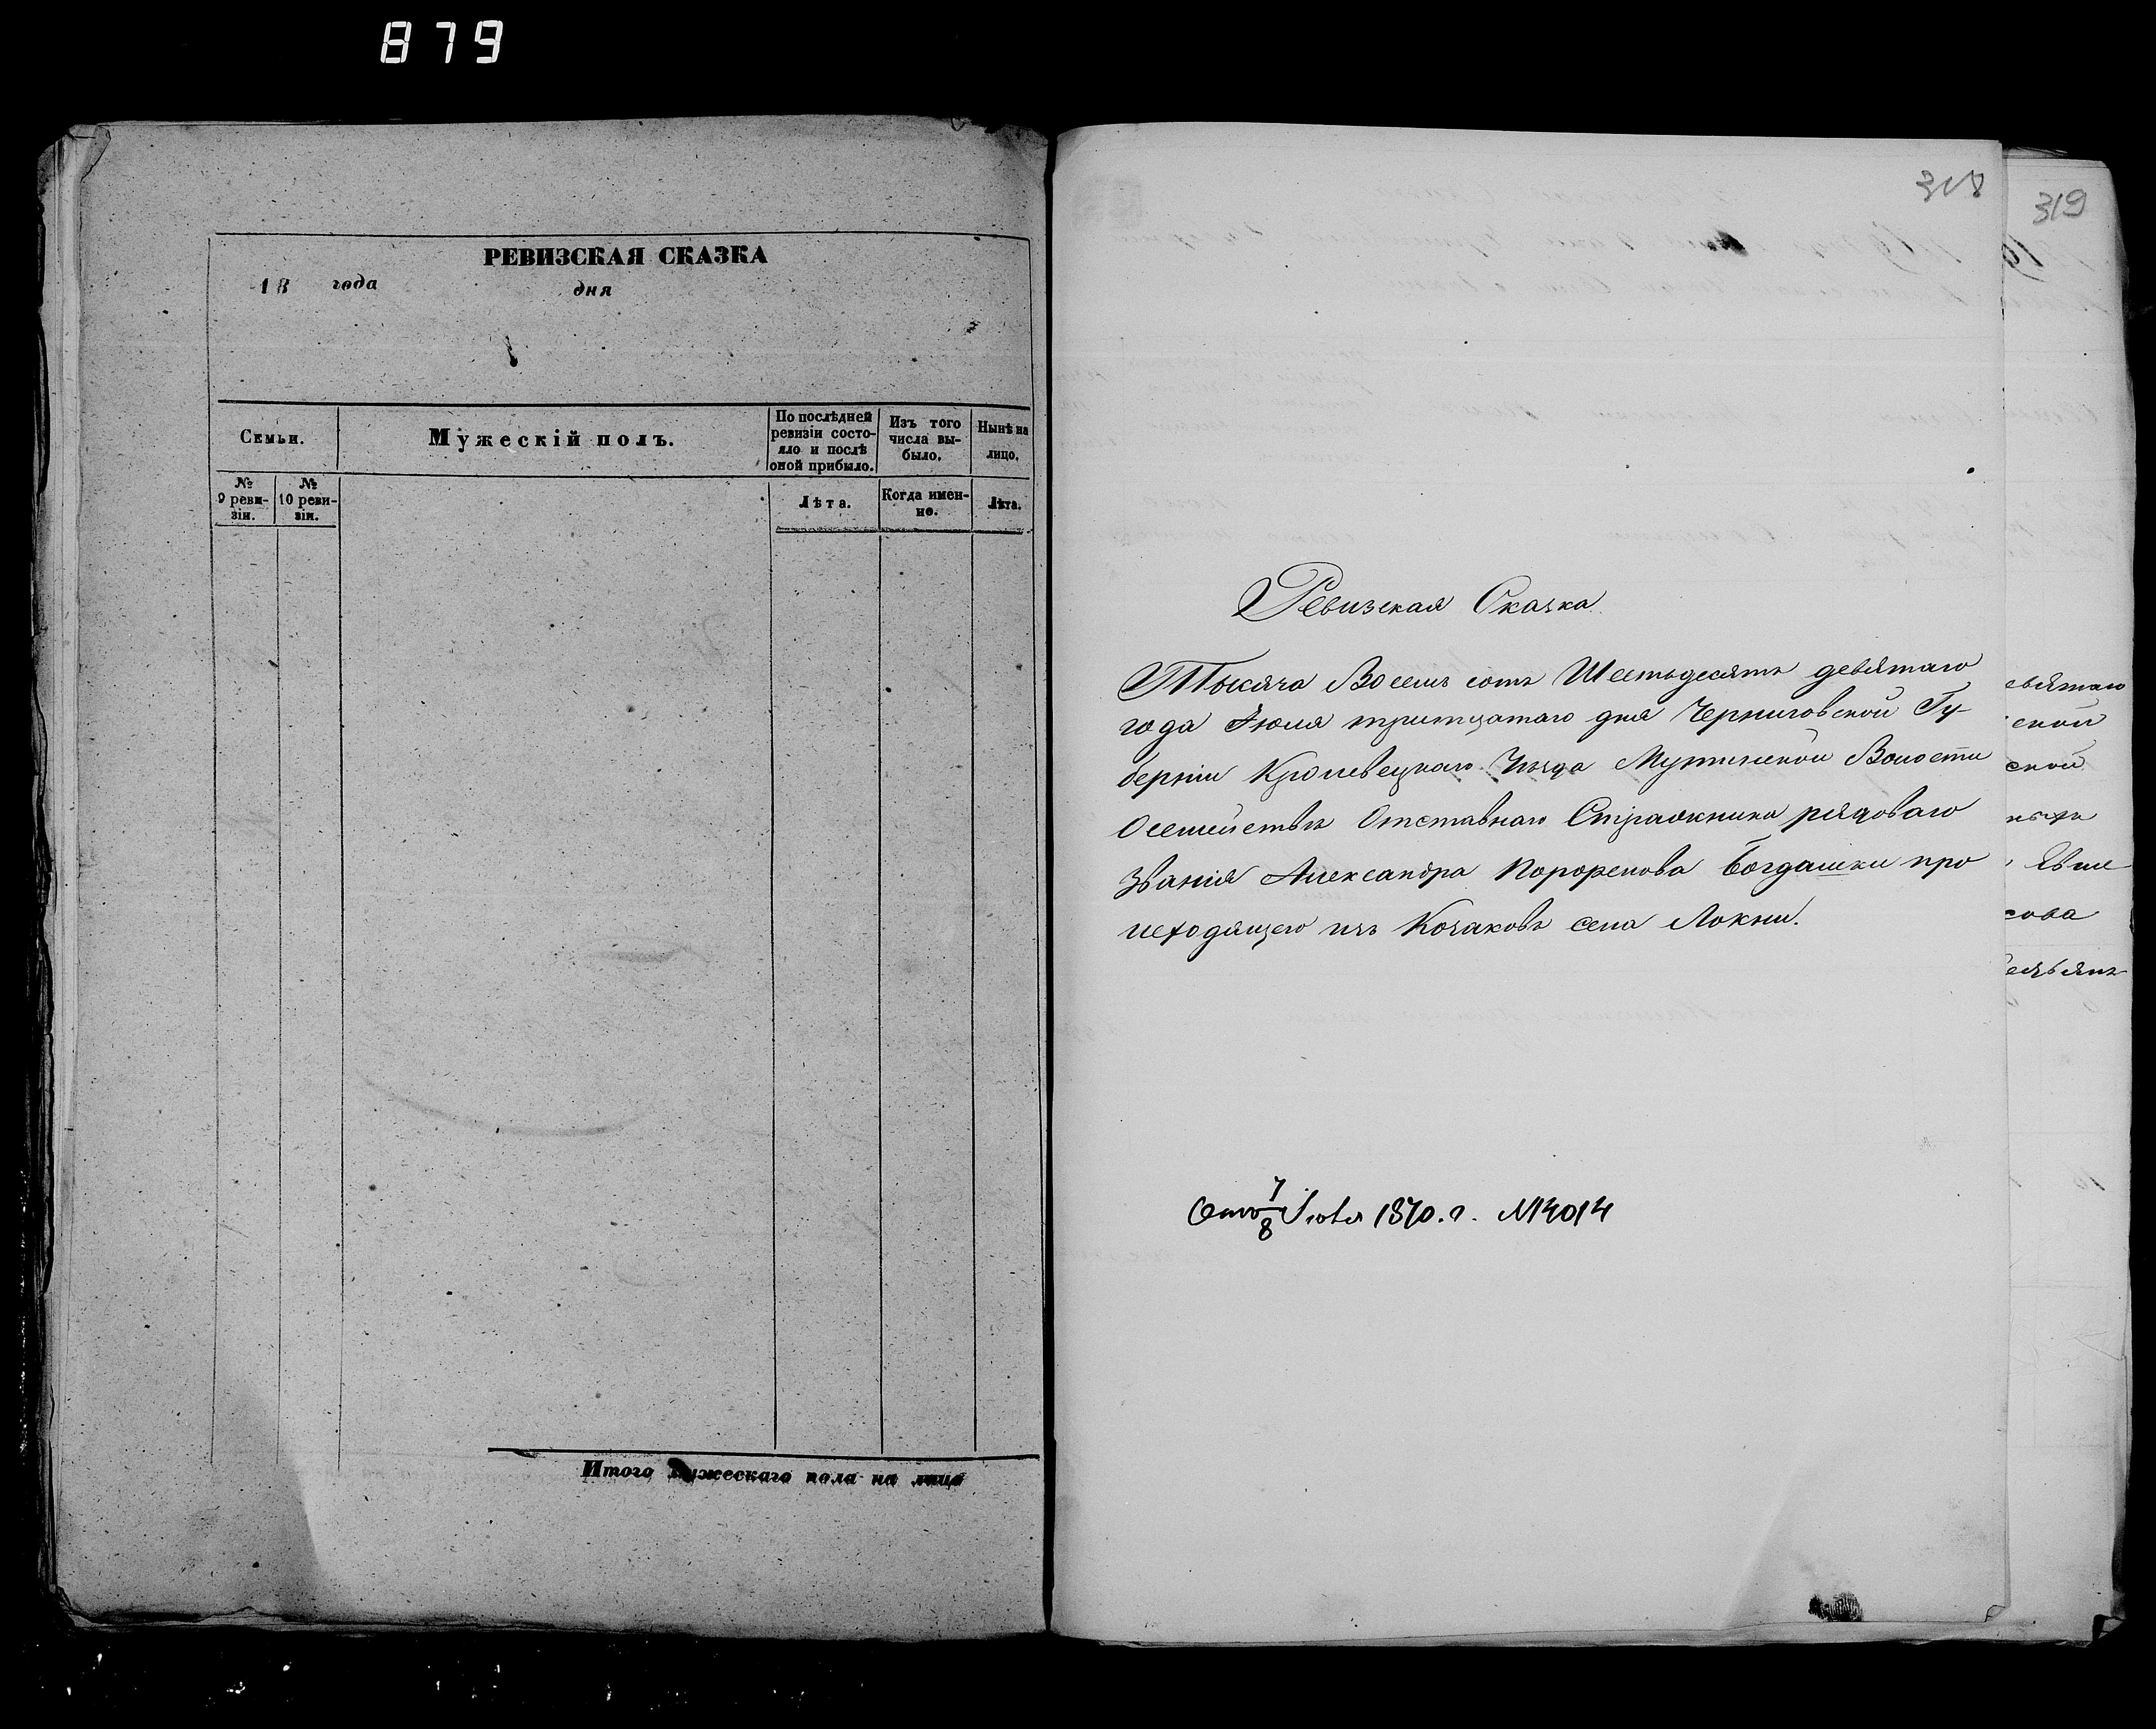 879
РЕВИЗСКАЯ СКАЗКА
18 года дня
Семьи.
Мужескій полъ.
По послѣдней ревизіи состо-
яло и послѣ
оной прибыло.
Изъ того
числа вы-
было.
Нынѣ на
лицо.
№
9 реви-
зіи.
№
10 реви-
зіи.
Лѣта.
Когда имен-
но.
Лѣта.
Итого мужескаго пола на лицо
318
Ревизская Сказка
Тысяча Восемъ сотъ Шестьдесятъ девятаго
года Іюля тритцатаго дня Черниговской Гу
берніи Кролевецкаго Уѣзда Мутинской Волости
О семействѣ Отставнаго Стражника рядоваго
званія Александра Богдашки про
исходящего изъ Козаковъ села Локни.
7
8
1870. г. №14014
319
евятаго
ской
ской
сова